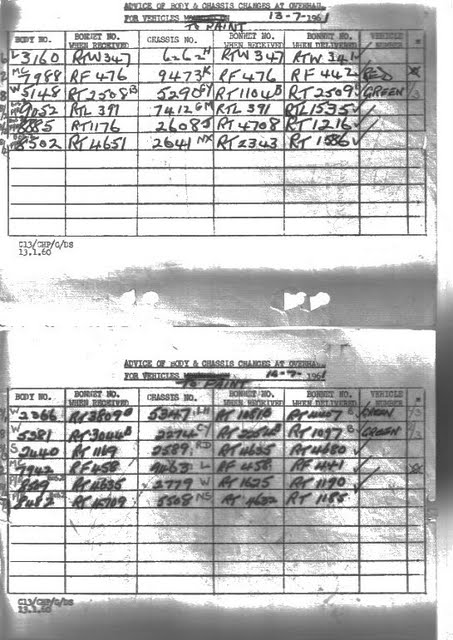 ADVICE OF BODY & CHASSIS CHANGES AT OVERHAUL
FOR VEHICLES 13-7-1961
TO PAINT
BODY NO. BONNET NO. WHEN RECEIVED CHASSIS NO. BONNET NO. WHEN RECEIVED BONNET NO. WHEN DELIVERED VEHICLE NUMBER
L 3160 RTW 347 6262 H RTW 347 RTW 341
7988 RF 476 9473 K RF 476 RF 442 RED
W 5148 RT 2508 B 5290 FY RT 1104 B RT 2509 GREEN /3
9052 RTL 391 7412 GM RTL 391 RTL 1535
8885 RT 1176 2608 J RT 4708 RT 1216
8502 RT 4651 2641 NX RT 2343 RT 1586
C13/CHP/G/DS
13.1.60
ADVICE OF BODY & CHASSIS CHANGES AT OVERHAUL
FOR VEHICLES 1961
TO PAINT
BODY NO. BONNET NO. WHEN RECEIVED CHASSIS NO. BONNET NO. WHEN RECEIVED BONNET NO. WHEN DELIVERED VEHICLE NUMBER
W 2366 RT 3809 5347 LH GREEN /3
W 5281 RT 3044 B 2274 CY RT 1097 B GREEN /3
S 2440 RT 1169 2589 RD RT 4625 RT 4680
7942 RF 458 9463 L RF 458 RF 441
RT 4635 2779 W RT 1675 RT 1190
5508 NS RT 1185
C13/CHP/G/DS
13.1.60